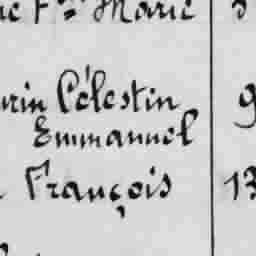 Marie
Célestin 9
Emmanuel
François 13